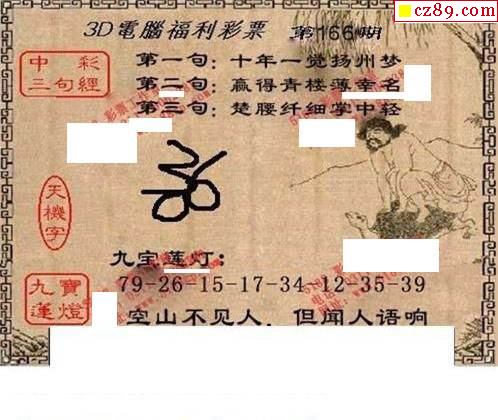 cz89.com
3D電腦福利彩票 第166期
中彩三句經
第一句：十年一觉扬州梦
第二句：赢得青楼薄幸名
第三句：楚腰纤细掌中轻
天機字
九宝莲灯：
79-26-15-17-34-12-35-39
九寶蓮燈
空山不见人，但闻人语响